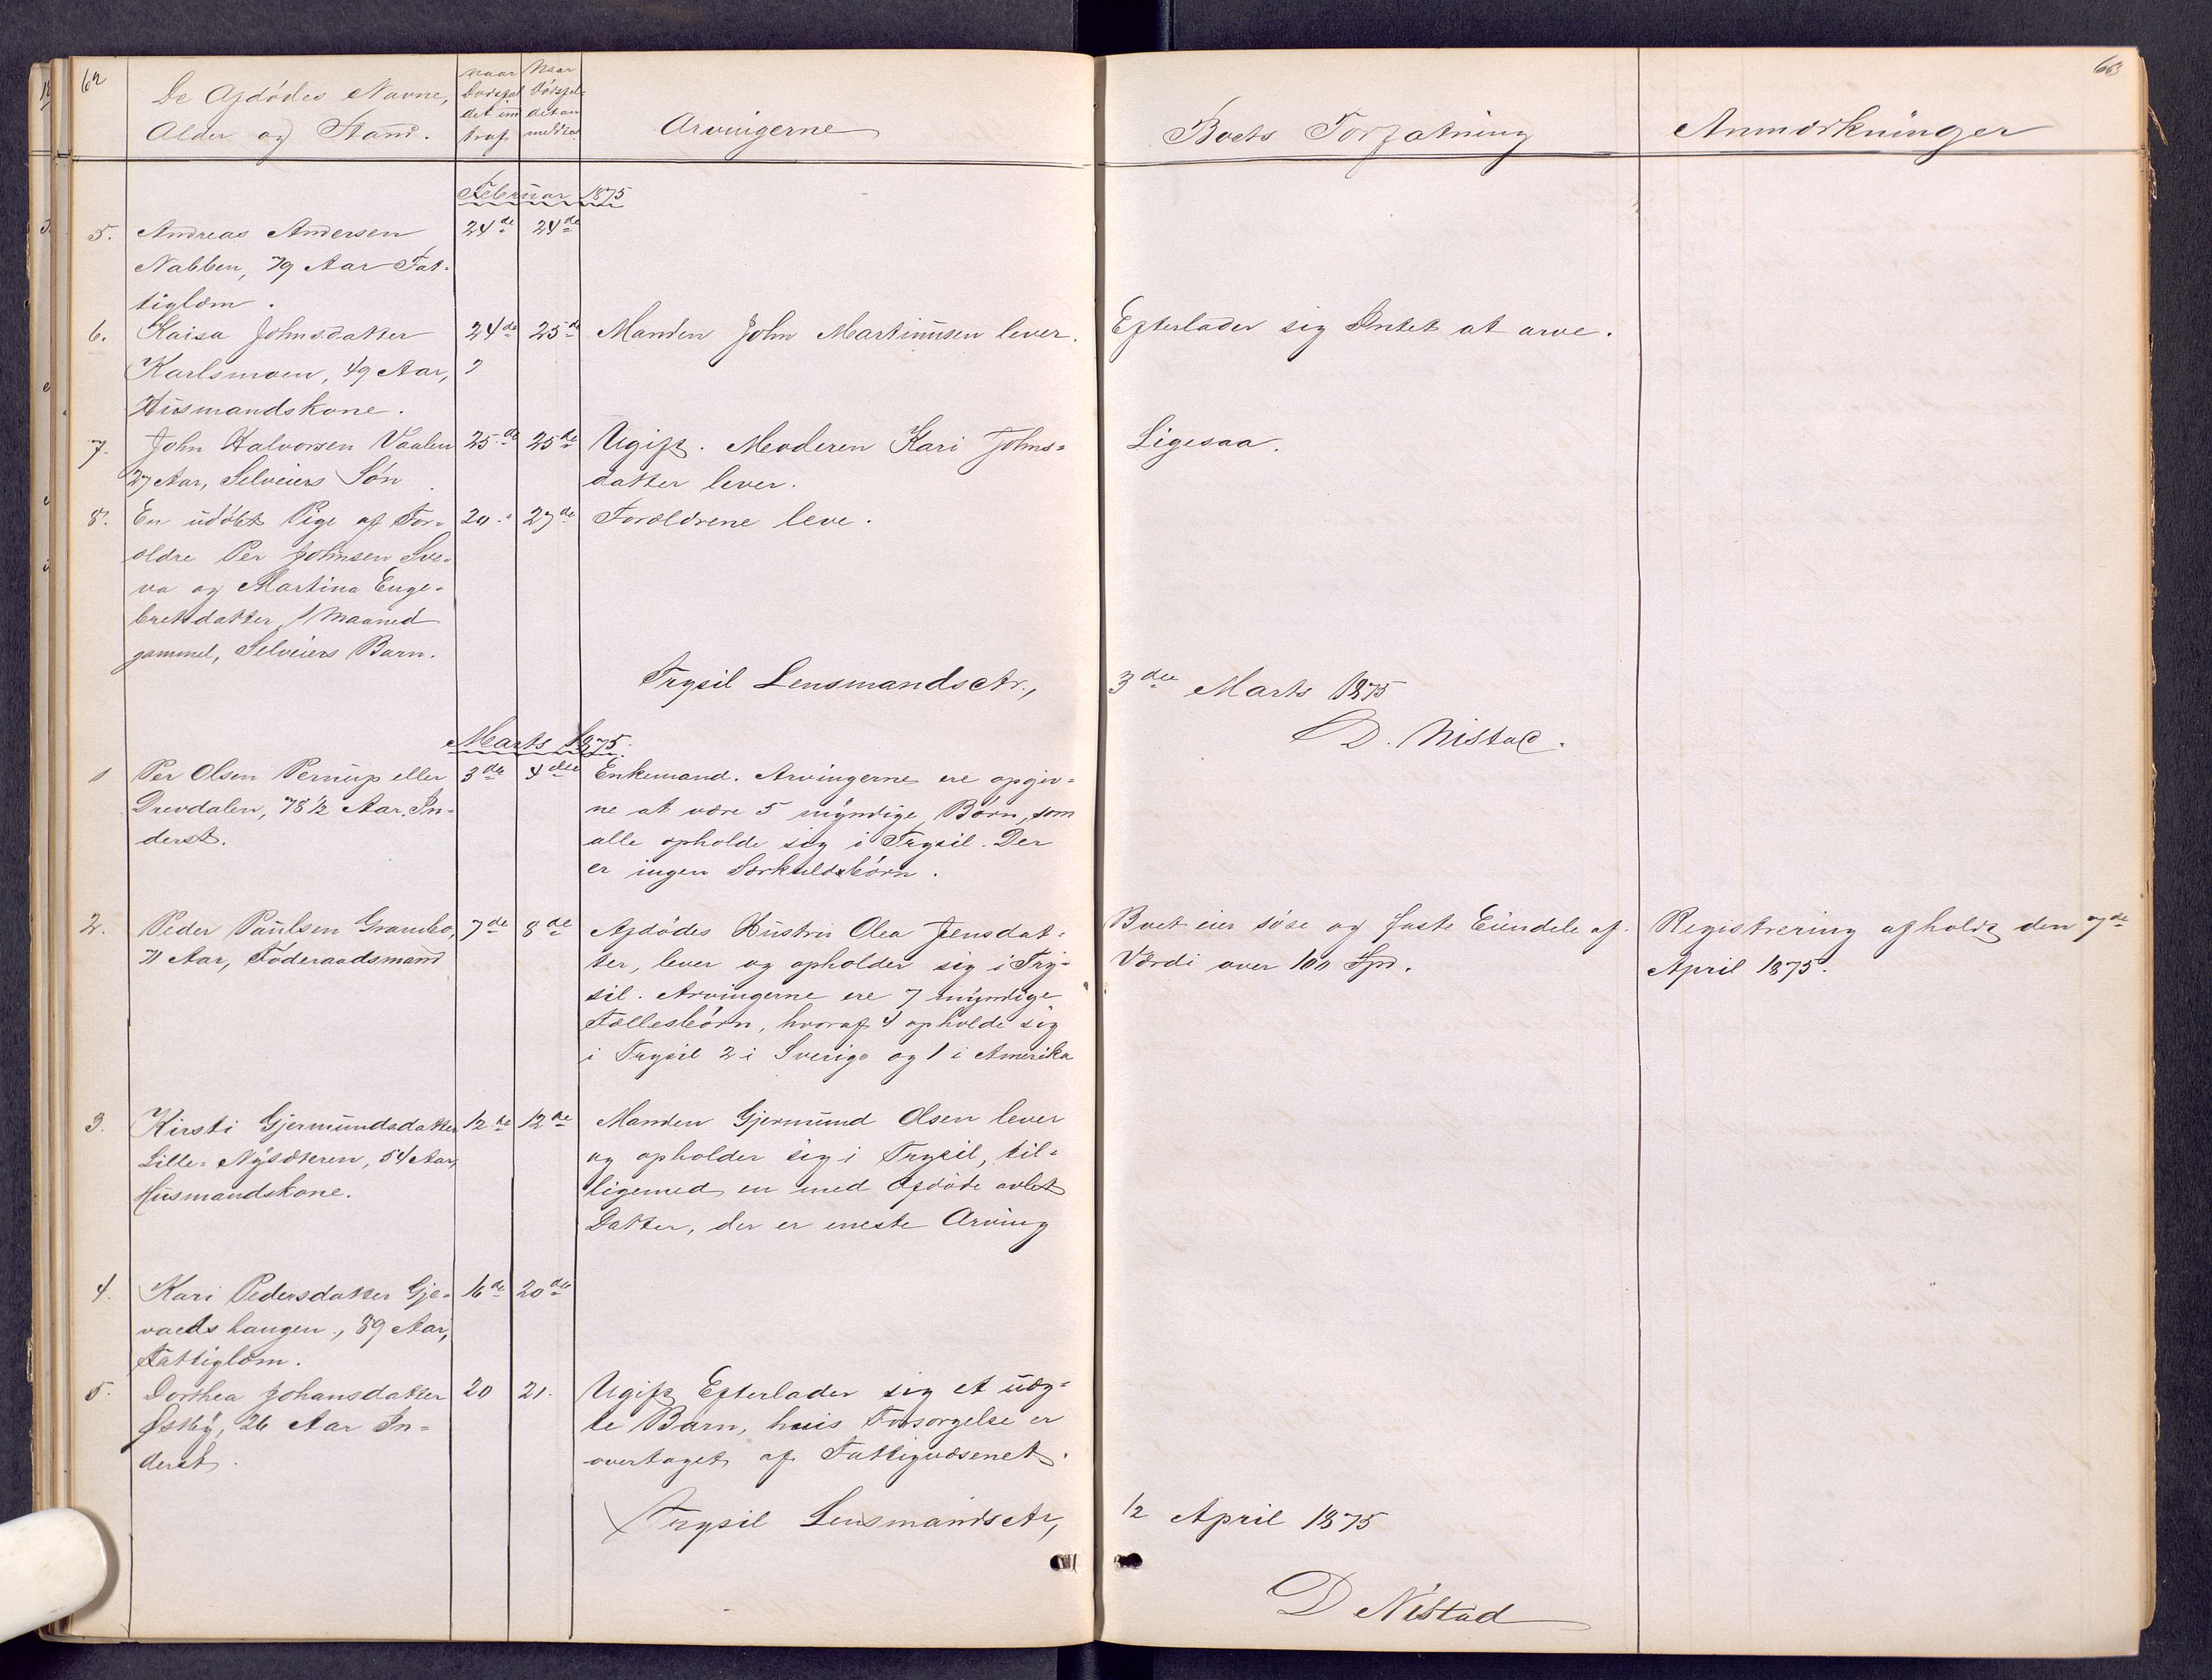 62
De Afdødes Navne,
Alder og Stand.
Naar
Dødsfal
det ind
traf
Naar
Dødsfal-
det an
meldtes
Arvingerne
Boets Forfatning
Anmærkninger
63
Februar 1875
5. Andreas Andersen 24de 24de
Nabben, 79 Aar Fat-
tiglem.
6. Kaisa Johnsdatter 24de 25de Manden John Martinusen lever. Efterlader sig Intet at arve.
Karlsmoen, 49 Aar,
Husmandskone.
7. John Halvorsen Vaalen 25de 25de Ugift. Moderen Kari Johns= Ligesaa.
27 Aar, Selveiers Søn datter lever.
8. En udøbt Pige af For- 20. 27de Forældrene leve.
ældre Per Johnsen Sve-
va og Martina Enge-
bretsdatter, 1 Maaned
gammel, Selveiers Barn.
Trysil Lensmandsctr., 3die Marts 1875
D. Nistad.
Marts 1875.
1 Per Olsen Pernup eller 3de 4de Enkemand. Arvingerne ere opgiv=
Drevdalen, 78 1/2 Aar. In- ne at være 5 myndige Børn, som
derst. alle opholde sig i Trysil. Der
er ingen Særkuldsbørn.
2. Peder Paulsen Grambo, 7de 8de Afdødes Hustru Olea Jensdat- Boet eier løse og faste Eiendele af Registrering afholdt den 7de
71 Aar, Føderaadsmand ter, lever og opholder sig i Try- Værdi over 100 Spd. April 1875.
sil. Arvingerne ere 7 myndige
Fællesbørn, hvoraf 4 opholde sig
i Trysil 2 i Sverige og 1 i Amerika
3. Kirsti Gjermundsdatter 12de 12de Manden Gjermund Olsen lever
Lille-Nysæteren, 54 Aar, og opholder sig i Trysil, til-
Husmandskone. ligemed en med Afdøde avlet
Datter, der er eneste Arving
4. Kari Pedersdatter Gje- 16de 20de
valdshaugen, 89 Aar,
Fattiglem.
5. Dorthea Johansdatter 20 21. Ugift Efterlader sig et uæg-
Østby, 26 Aar In- te Barn, hvis Forsørgelse er
derst. overtaget af Fattigvæsenet.
Trysil Lensmandsctr, 1/2 April 1875
D Nistad